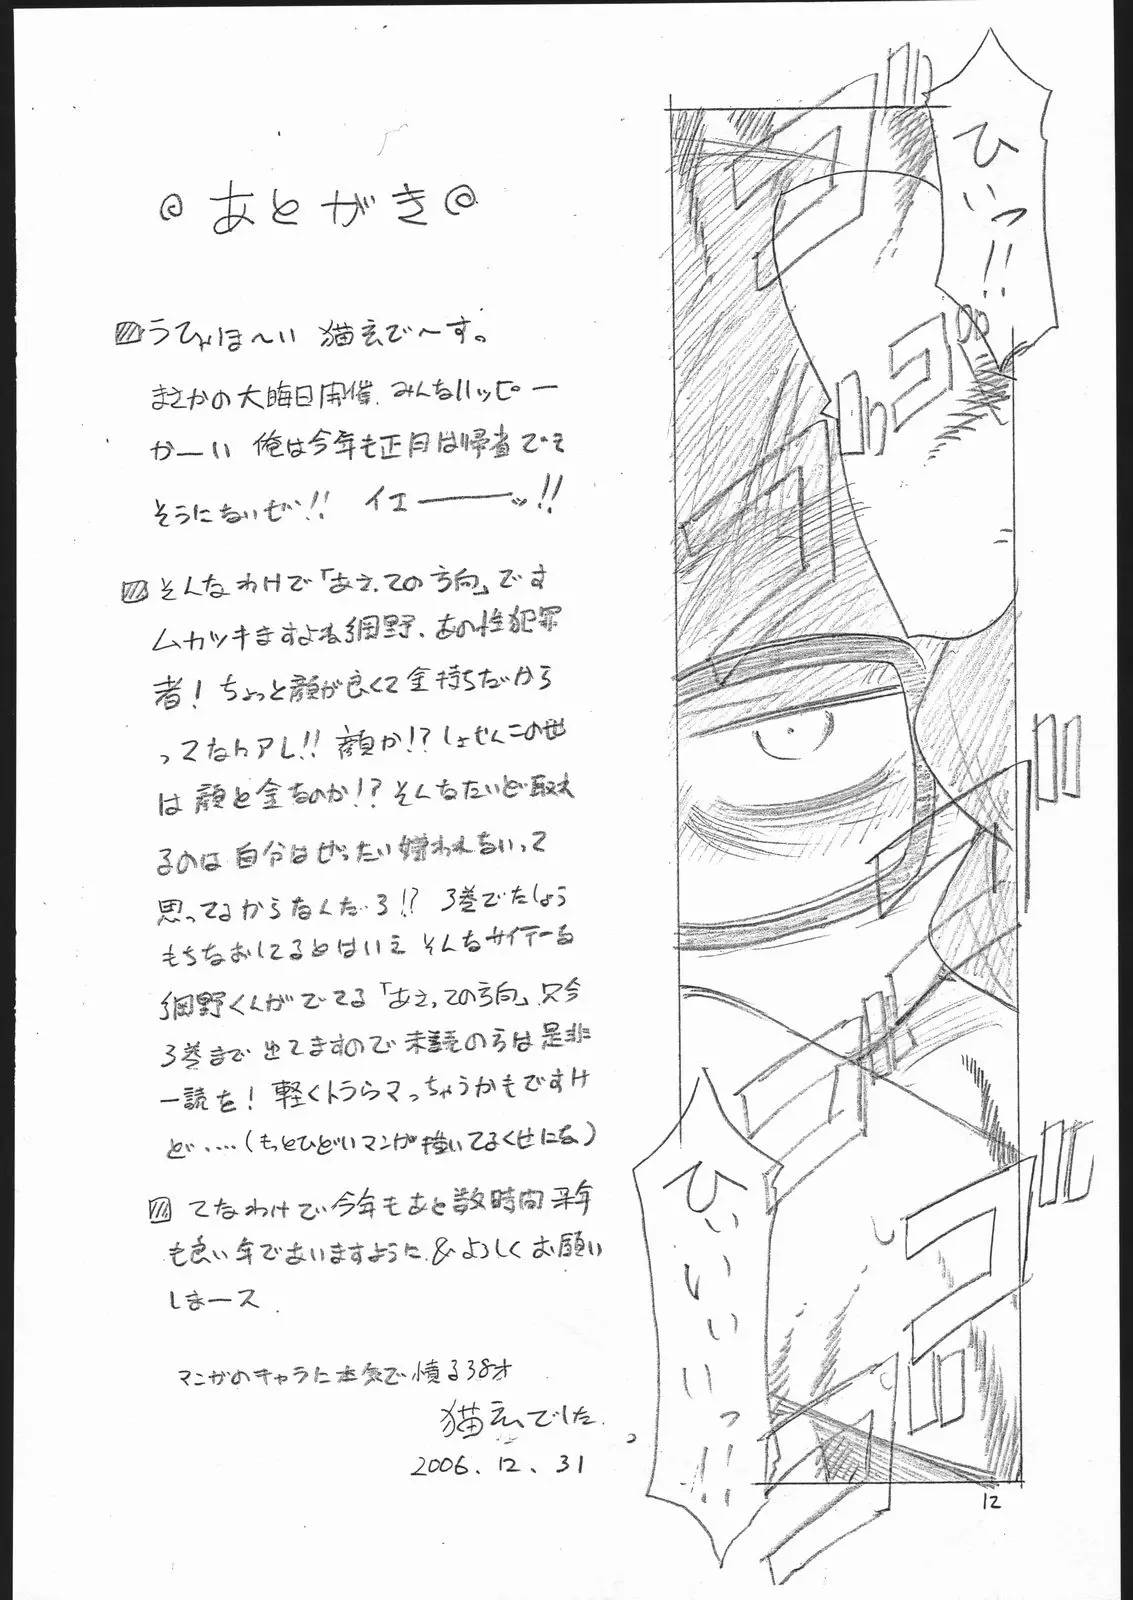 あとがき
うひゃほ〜い 猫玄で〜す。
まさかの大晦日開催、みんなハッピー
かーい 俺は今年も正月は帰省でき
そうにないぜ!! イエーーーッ!!
そんなわけで「あえての方向」です
ムカツキますよね網野、あの性犯罪
者! ちょっと顔が良くて金持ちだから
ってなんアレ!! 顔か!? しょせんこの世
は顔と金なのか!? そんなたいど取れ
るのは自分はぜったい嫌われないって
思ってるからなんだろ!? 3巻でたしょう
もちなおしてるとはいえ そんなサイテーな
網野くんがでてる「あえての方向」只今
3巻まで出てますので未読の方は是非
一読を! 軽くトラウマっちゃうかもですけ
ど‥‥(もっとひどいマンガ描いてるくせにな)
てなわけで今年もあと数時間 来年
も良い年でありますように & よろしくお願い
しまース
マンガのキャラに本気で憤る38才
猫玄でした
2006.12.31
ひいっ!!
ひいいいいっ!!
12